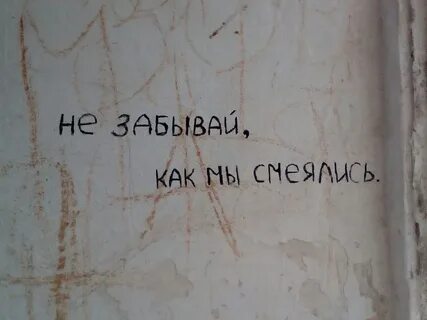 не забывай,
как мы смеялись.